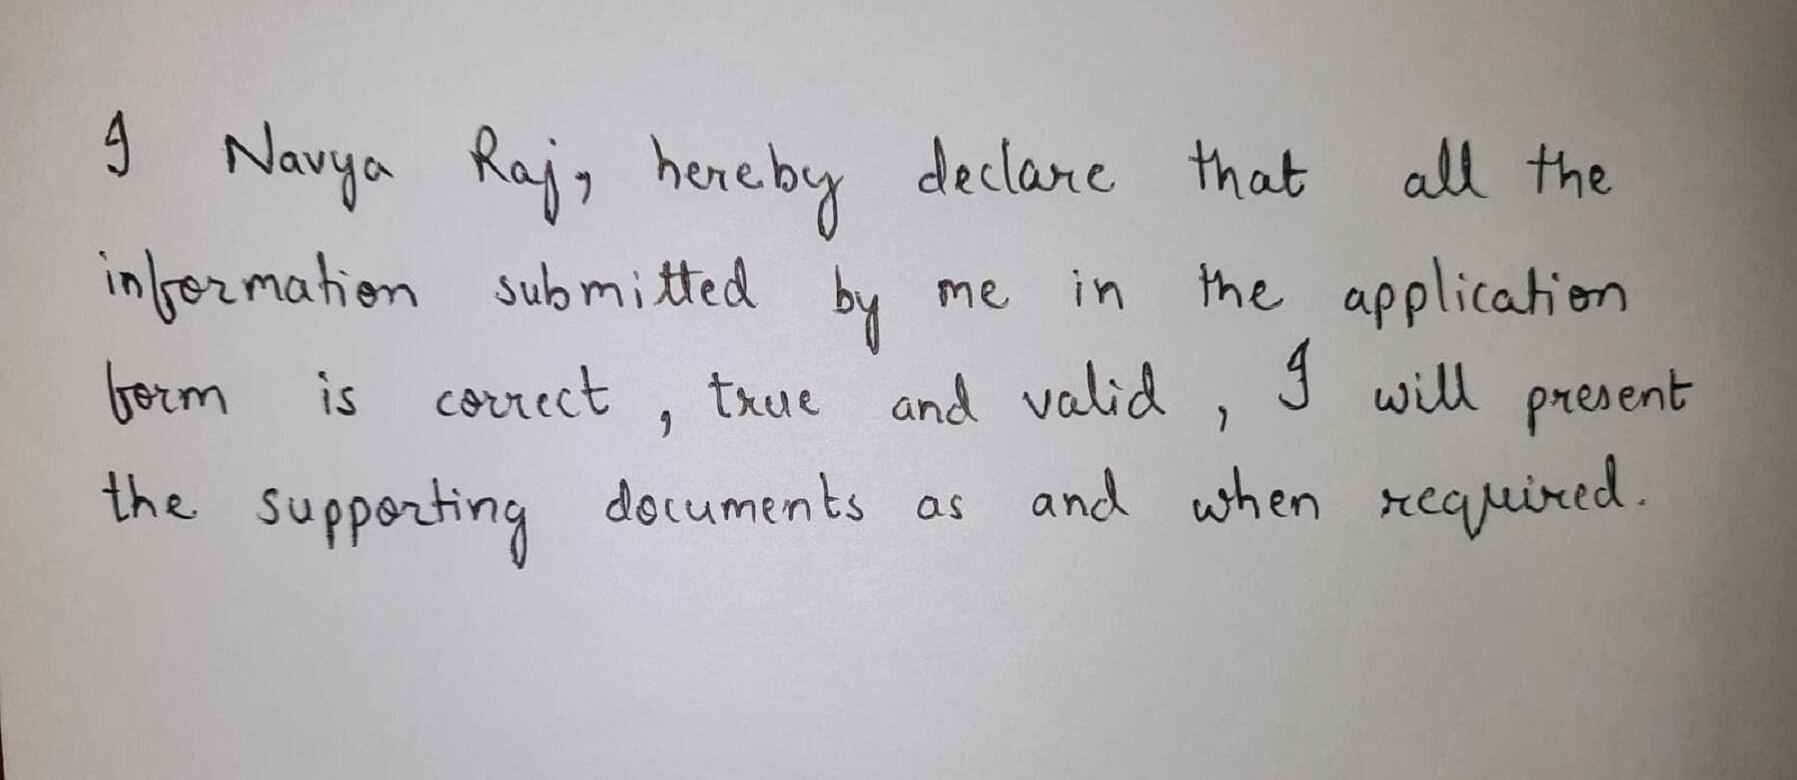 I Navya Raj, hereby declare that all the
information submitted by me in the application
form is correct, true and valid, I will present
the supporting documents as and when required.